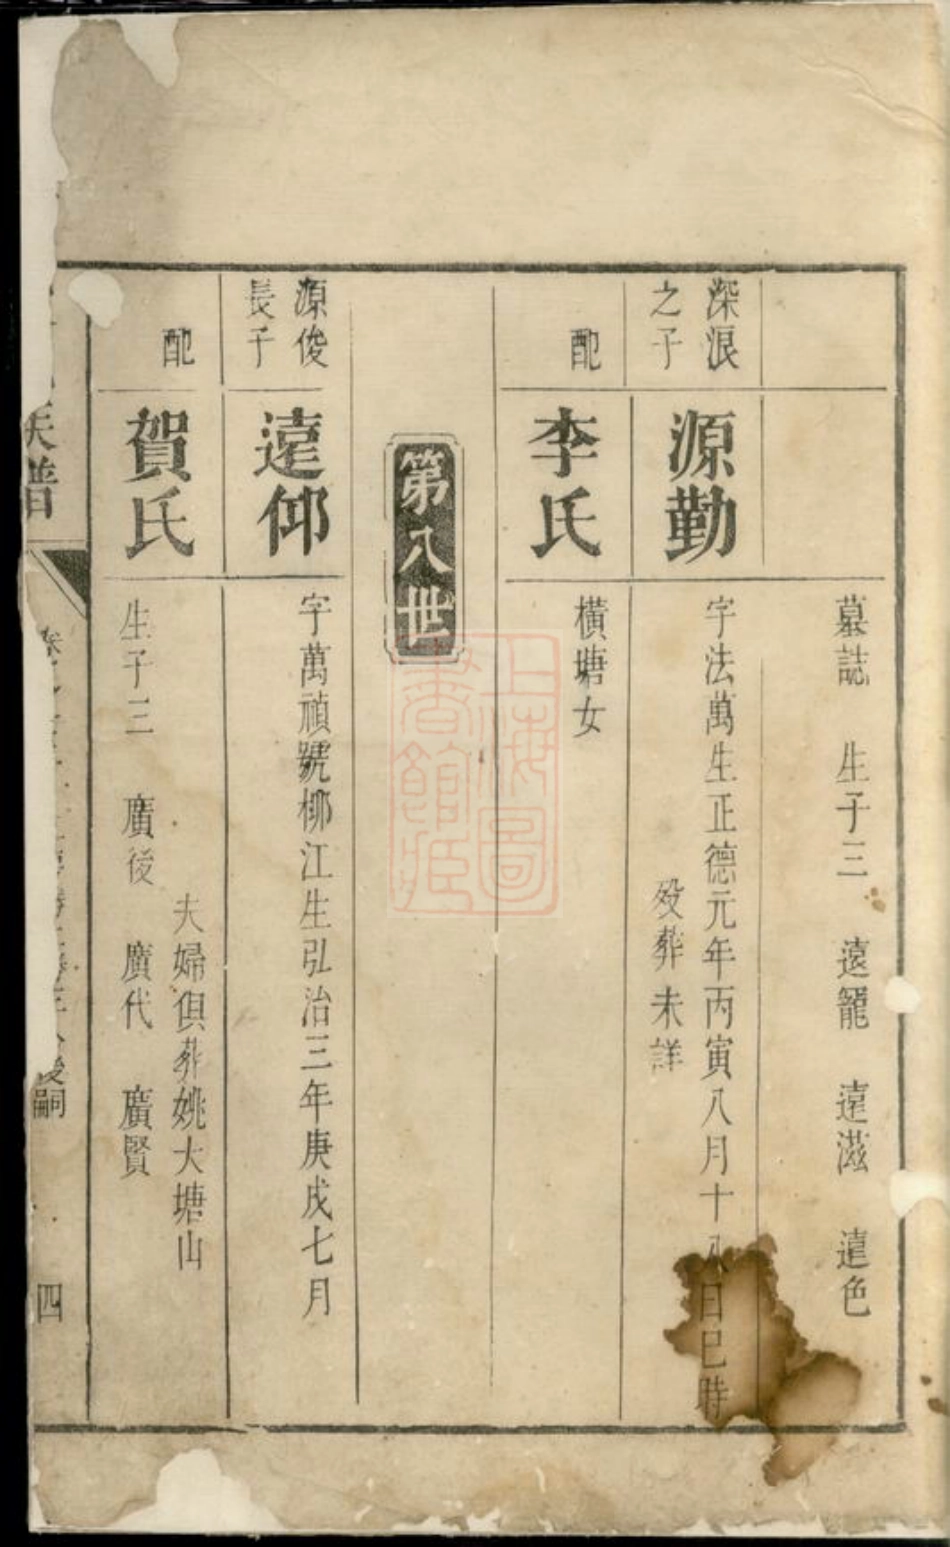 墓誌 生子三 遠籠 遠滋 遠色
深浪
之子
源勤
字法萬生正德元年丙寅八月十八日巳時
歿葬未詳
配
李氏
橫塘女
第八世
源俊
長子
遠仰
字萬禎號柳江生弘治三年庚戌七月
配
賀氏
夫婦俱葬姚大塘山
生子三 廣後 廣代 廣賢
族譜
後嗣
四
上海圖
書館藏